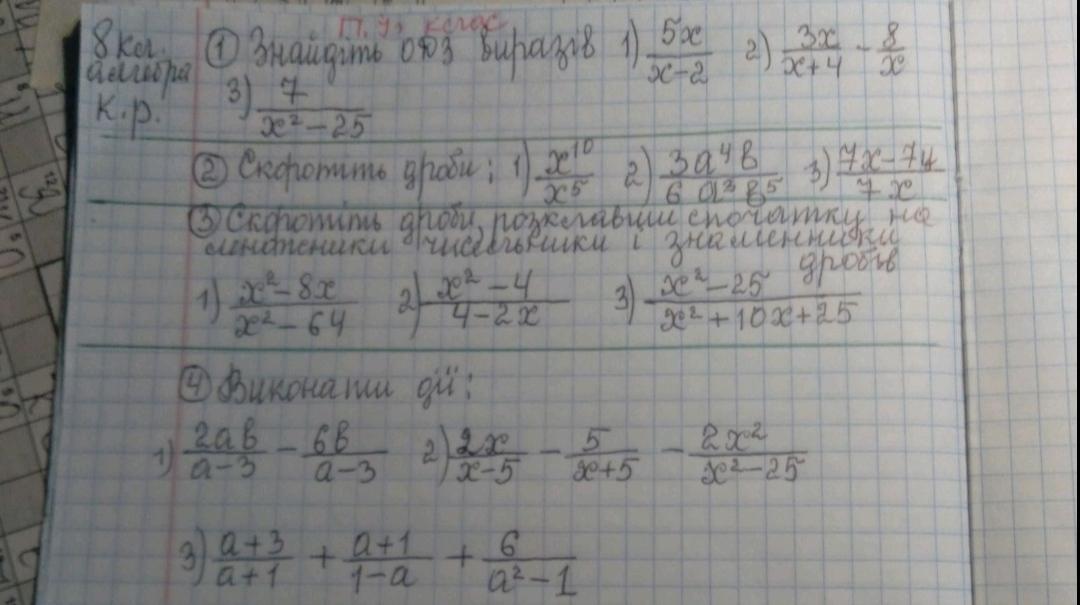 П. 9, клас
8 кл. ① Знайдіть ОДЗ виразів 1) 5x/(x-2) 2) 3x/(x+4) - 8/x
алгебра
к.р. 3) 7/(x²-25)
② Скоротить дроби: 1) x¹⁰/x⁵ 2) 3a⁴b/(6a³b⁵) 3) (7x-7y)/(7x)
③ Скоротіть дроби, розклавши спочатку на
множники чисельники і знаменники
дробів
1) (x²-8x)/(x²-64) 2) (x²-4)/(4-2x) 3) (x²-25)/(x²+10x+25)
④ Виконати дії:
1) 2ab/(a-3) - 6b/(a-3) 2) 2x/(x-5) - 5/(x+5) - 2x²/(x²-25)
3) (a+3)/(a+1) + (a+1)/(1-a) + 6/(a²-1)